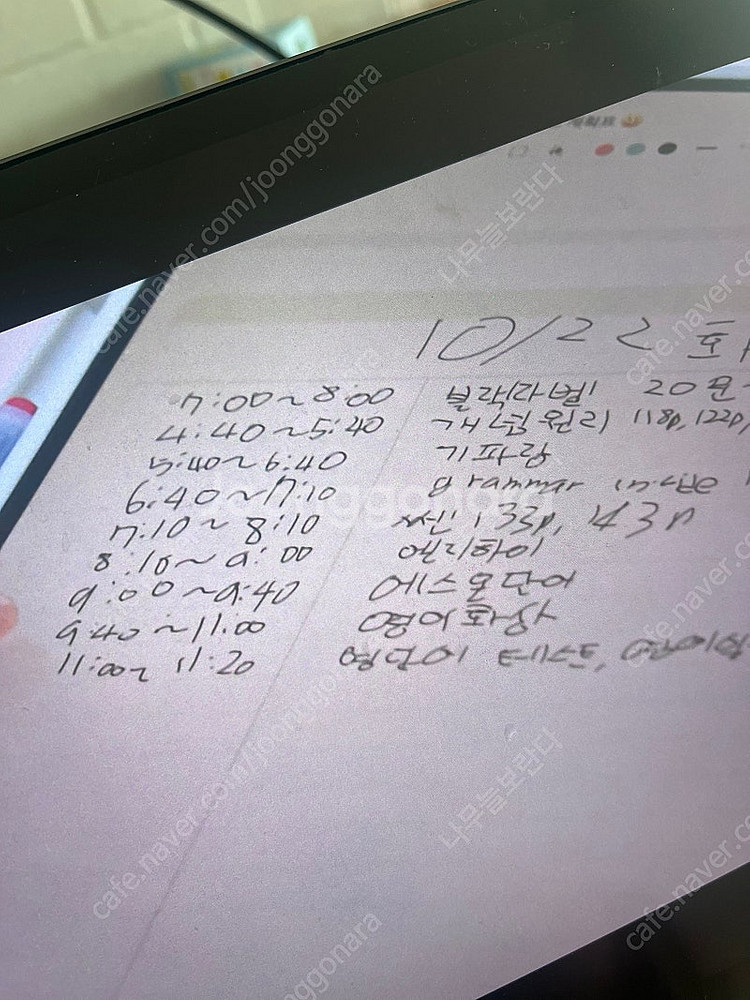 10/22 화
7:00~8:00 블랙라벨 20문
4:40~5:40 개념원리 118p, 122p,
5:40~6:40 기파랑
6:40~7:10 grammar inside
7:10~8:10 쎈 133p, 143p
8:10~9:00 엔리하이
9:00~9:40 에스몬단어
9:40~11:00 영어화상
11:00~11:20 영단어 테스트,
joonggonara
cafe.naver.com/joonggonara
나무늘보란다
cafe.naver.com/joonggonara
나무늘보란다